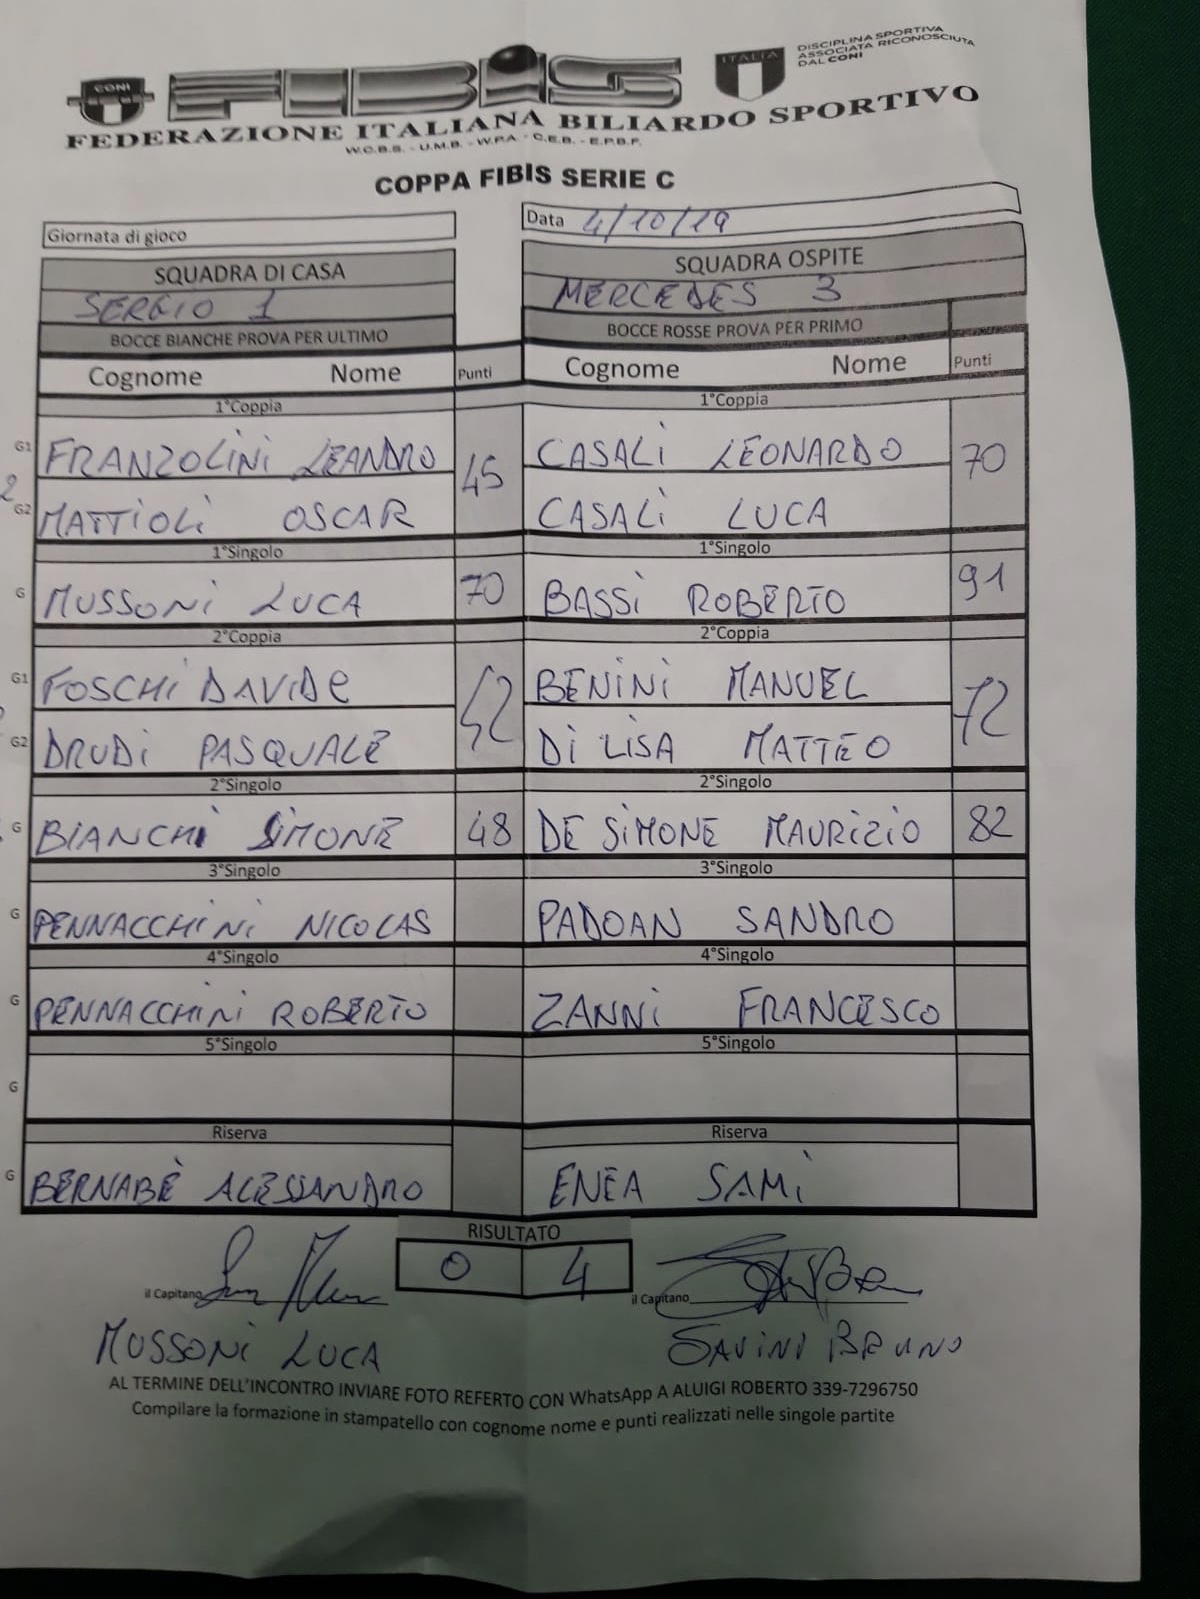 CONI
FIBIS
ITALIA
DISCIPLINA SPORTIVA
ASSOCIATA RICONOSCIUTA
DAL CONI
FEDERAZIONE ITALIANA BILIARDO SPORTIVO
W.C.B.S. - U.M.B. - W.P.A. - C.E.B. - E.P.B.F.
COPPA FIBIS SERIE C
Giornata di gioco
Data 4/10/19
SQUADRA DI CASA SQUADRA OSPITE
SERGIO 1 MERCEDES 3
BOCCE BIANCHE PROVA PER ULTIMO BOCCE ROSSE PROVA PER PRIMO
Cognome Nome Punti Cognome Nome Punti
1°Coppia 1°Coppia
G1 FRANZOLINI LEANDRO 45 CASALI LEONARDO 70
G2 MATTIOLI OSCAR CASALI LUCA
1°Singolo 1°Singolo
G MUSSONI LUCA 70 BASSI ROBERTO 91
2°Coppia 2°Coppia
G1 FOSCHI DAVIDE 52 BENINI MANUEL 72
G2 DRUDI PASQUALE DI LISA MATTEO
2°Singolo 2°Singolo
G BIANCHI SIMONE 48 DE SIMONE MAURIZIO 82
3°Singolo 3°Singolo
G PENNACCHINI NICOLAS PADOAN SANDRO
4°Singolo 4°Singolo
G PENNACCHINI ROBERTO ZANNI FRANCESCO
5°Singolo 5°Singolo
G
Riserva Riserva
G BERNABÈ ALESSANDRO ENEA SAMI
RISULTATO
0 4
il Capitano il Capitano
MUSSONI LUCA SAVINI BRUNO
AL TERMINE DELL'INCONTRO INVIARE FOTO REFERTO CON WhatsApp A ALUIGI ROBERTO 339-7296750
Compilare la formazione in stampatello con cognome nome e punti realizzati nelle singole partite